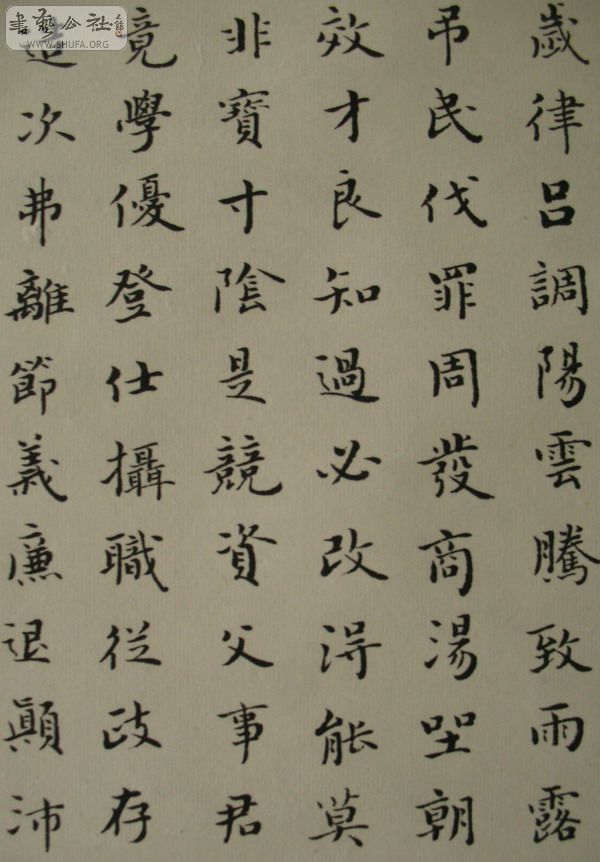 歲律呂調陽雲騰致雨露
弔民伐罪周發商湯坐朝
效才良知過必改得能莫
非寶寸陰是競資父事君
竟學優登仕攝職從政存
造次弗離節義廉退顛沛
書藝公社
WWW.SHUFA.ORG